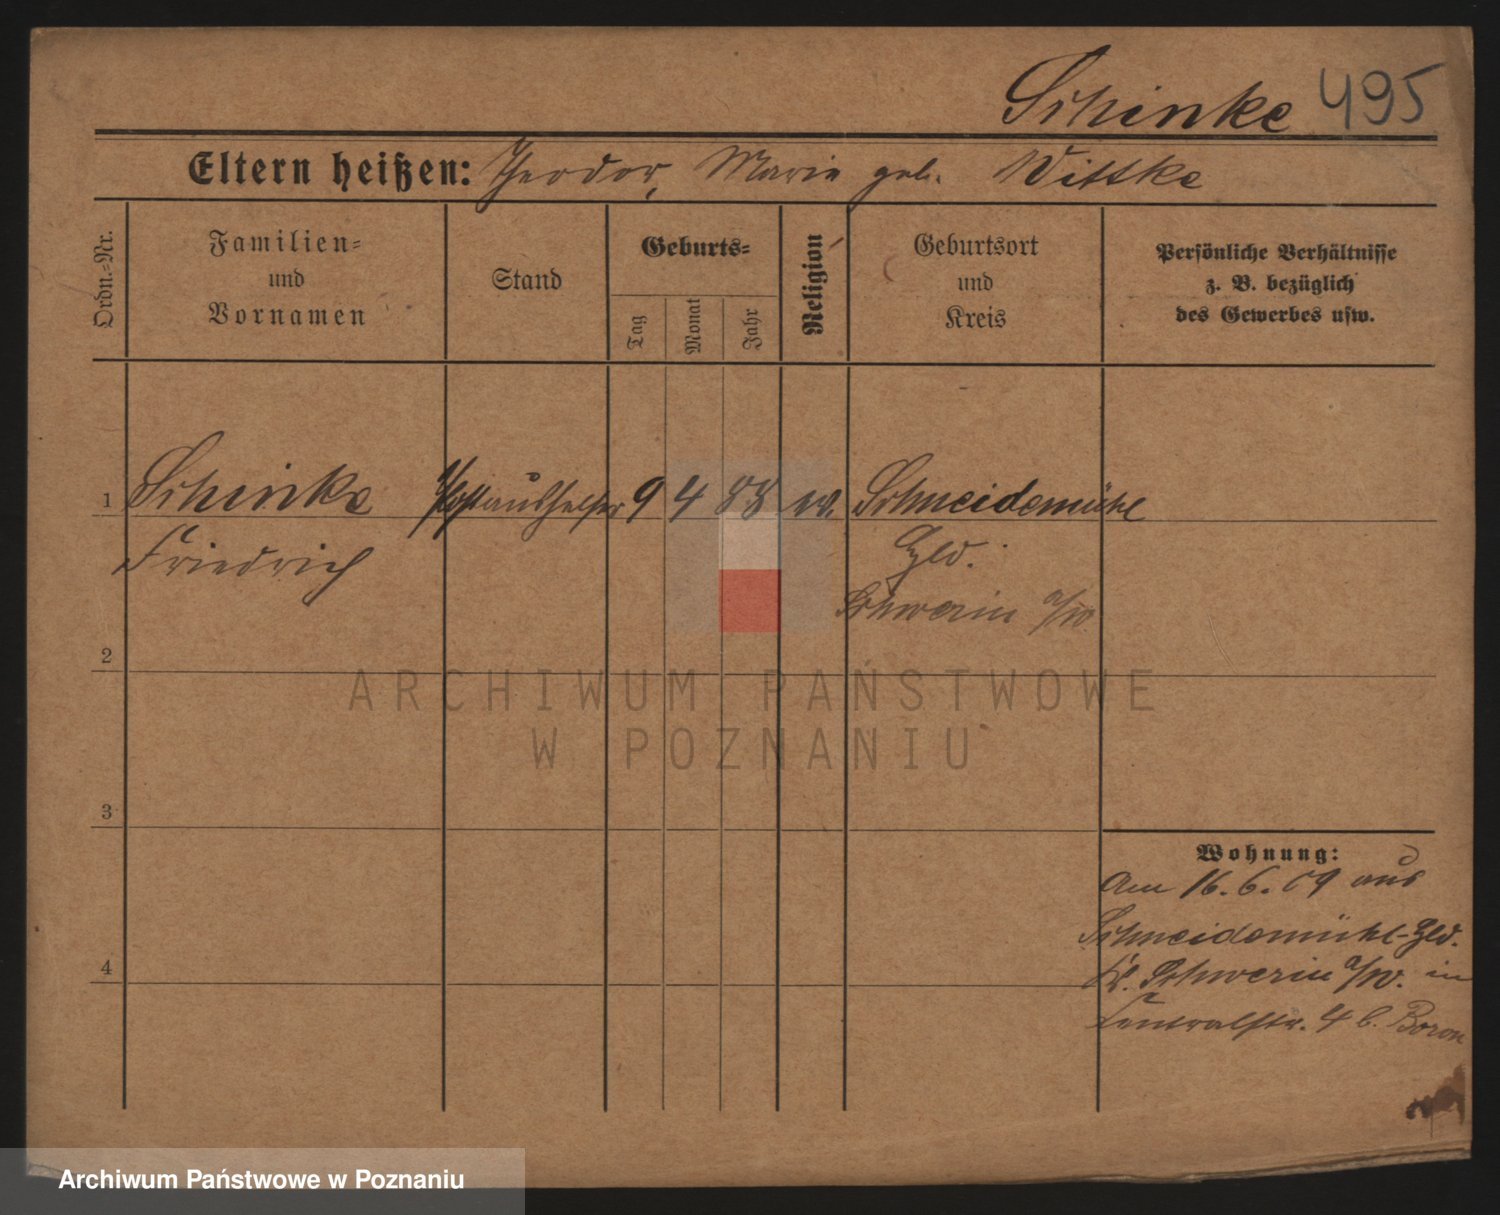 Schinke 495
Eltern heißen: Theodor, Marie geb. Wittke
Ordn.-Nr.
Familien-
und
Vornamen
Stand
Geburts-
Tag
Monat
Jahr
Religion
Geburtsort
und
Kreis
Persönliche Verhältnisse
z. B. bezüglich
des Gewerbes usw.
1 Schinke Postaushelfer 9 4 88 Schneidemühl
Friedrich Hld.
Schwerin a/W.
2
ARCHIWUM PAŃSTWOWE
W POZNANIU
3
Wohnung:
Am 16.6.09 aus
Schneidemühl-Hld.
Kr. Schwerin a/W. in
4
Centralstr. 4 b. Boron
Archiwum Państwowe w Poznaniu